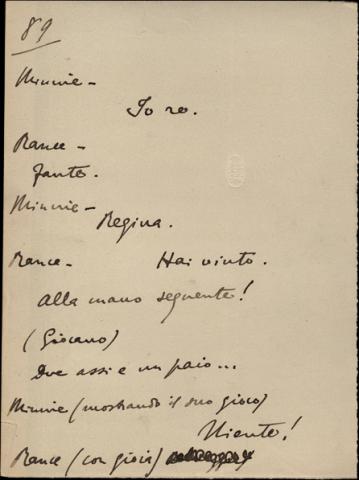 89
Minnie –
Io re.
Rance –
Fante.
Minnie –
Regina.
Rance – Hai vinto.
Alla mano seguente!
(Giocano)
Due assi e un paio...
Minnie (mostrando il suo gioco)
Niente!
Rance (con gioia)